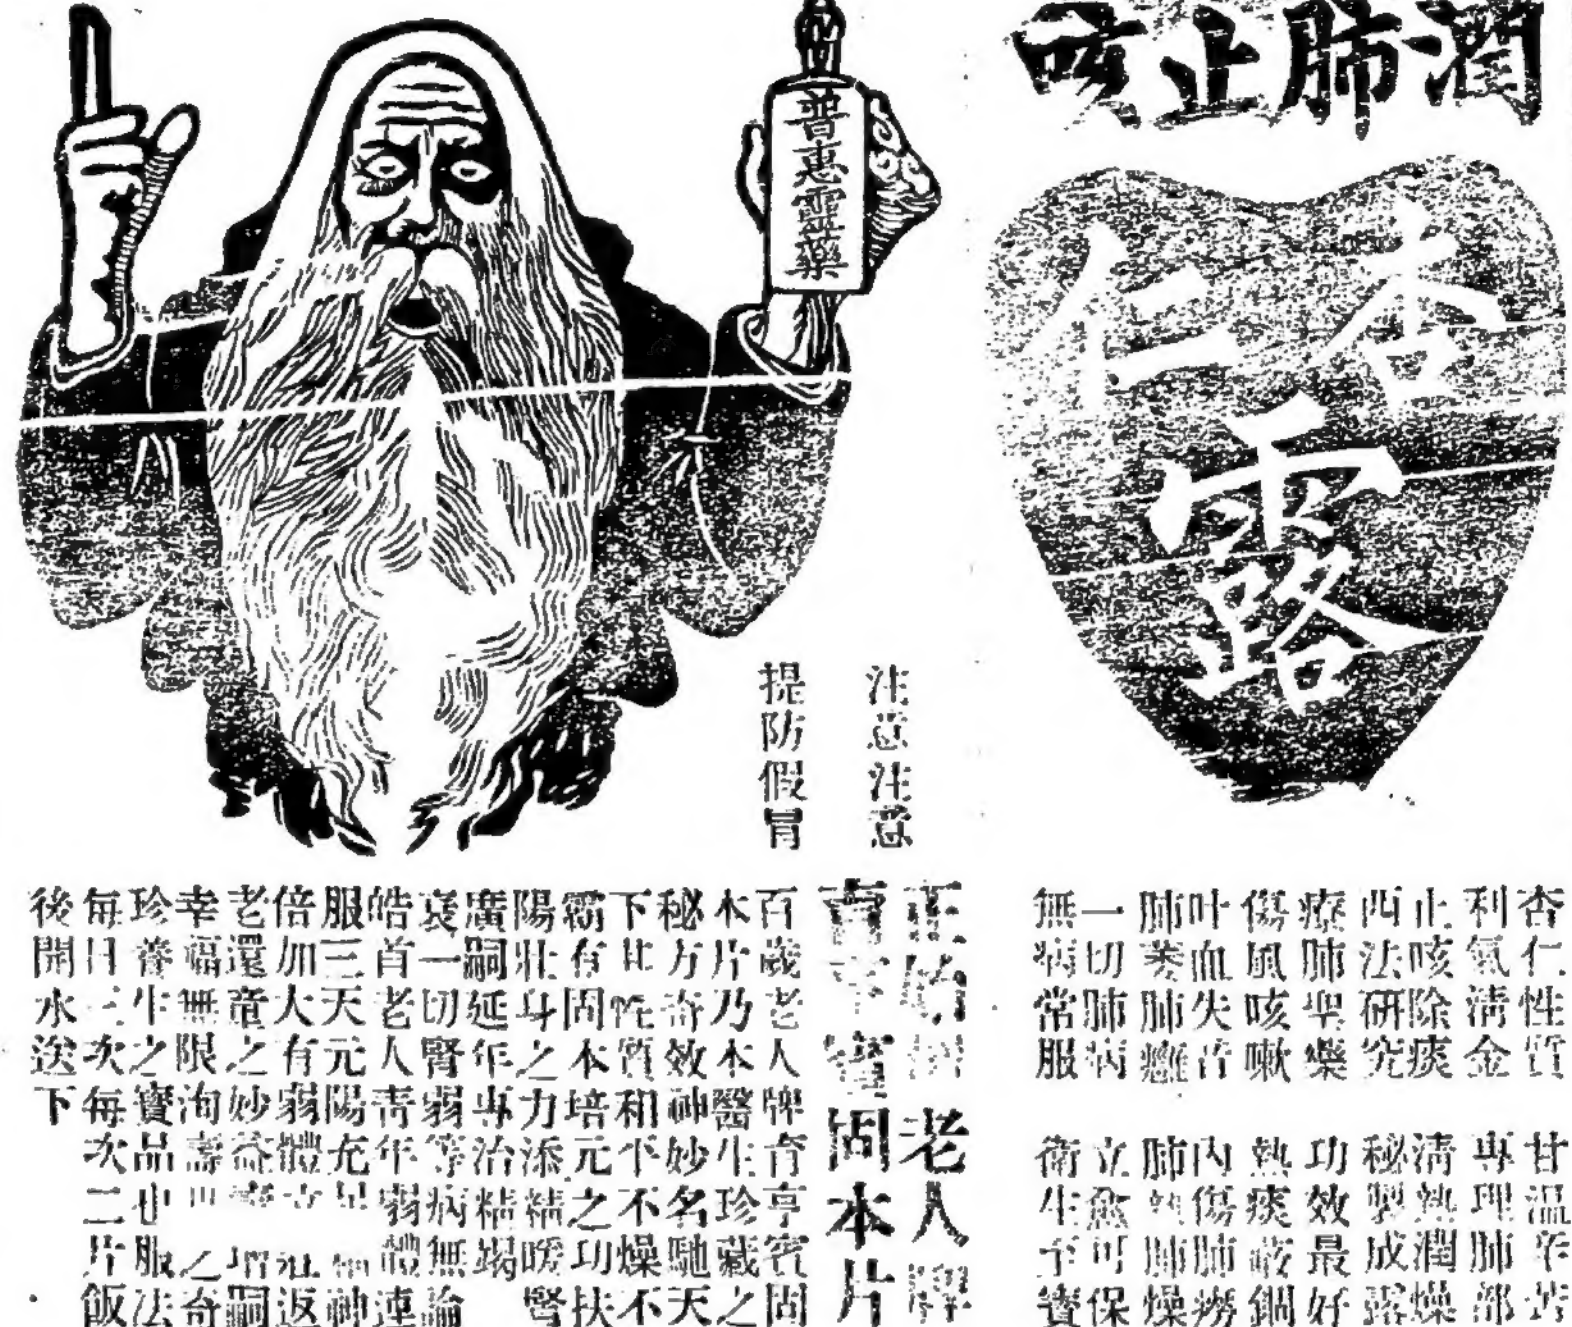 潤肺止咳
杏仁露
杏仁性質 甘温辛苦
利氣清金 專理肺部
止咳除痰 清熱潤燥
西法研究 秘製成露
療肺聖藥 功效最好
傷風咳嗽 熱痰
叶血失音 內傷肺癆
肺萎肺癰 肺熱肺燥
一切肺病 立愈可保
無病常服 衛生至寶
普惠靈藥
注意注意
提防假冒
正 老人牌
育亨賓固本片
百歲老人牌育亨賓固
本片乃本醫生珍藏之
秘方奇效神妙名馳天
下其性質和平不燥不
霸有固本培元之功扶
陽壯身之力添精暖腎
廣嗣延年專治精竭
衰一切腎弱等病無論
皓首老人青年弱體連
服三天元陽充足 神
倍加大有弱體立壯返
老還童之妙益壽增嗣
幸福無限洵壽世之奇
珍養生之寶品也服法
每日三次每次二片飯
後開水送下